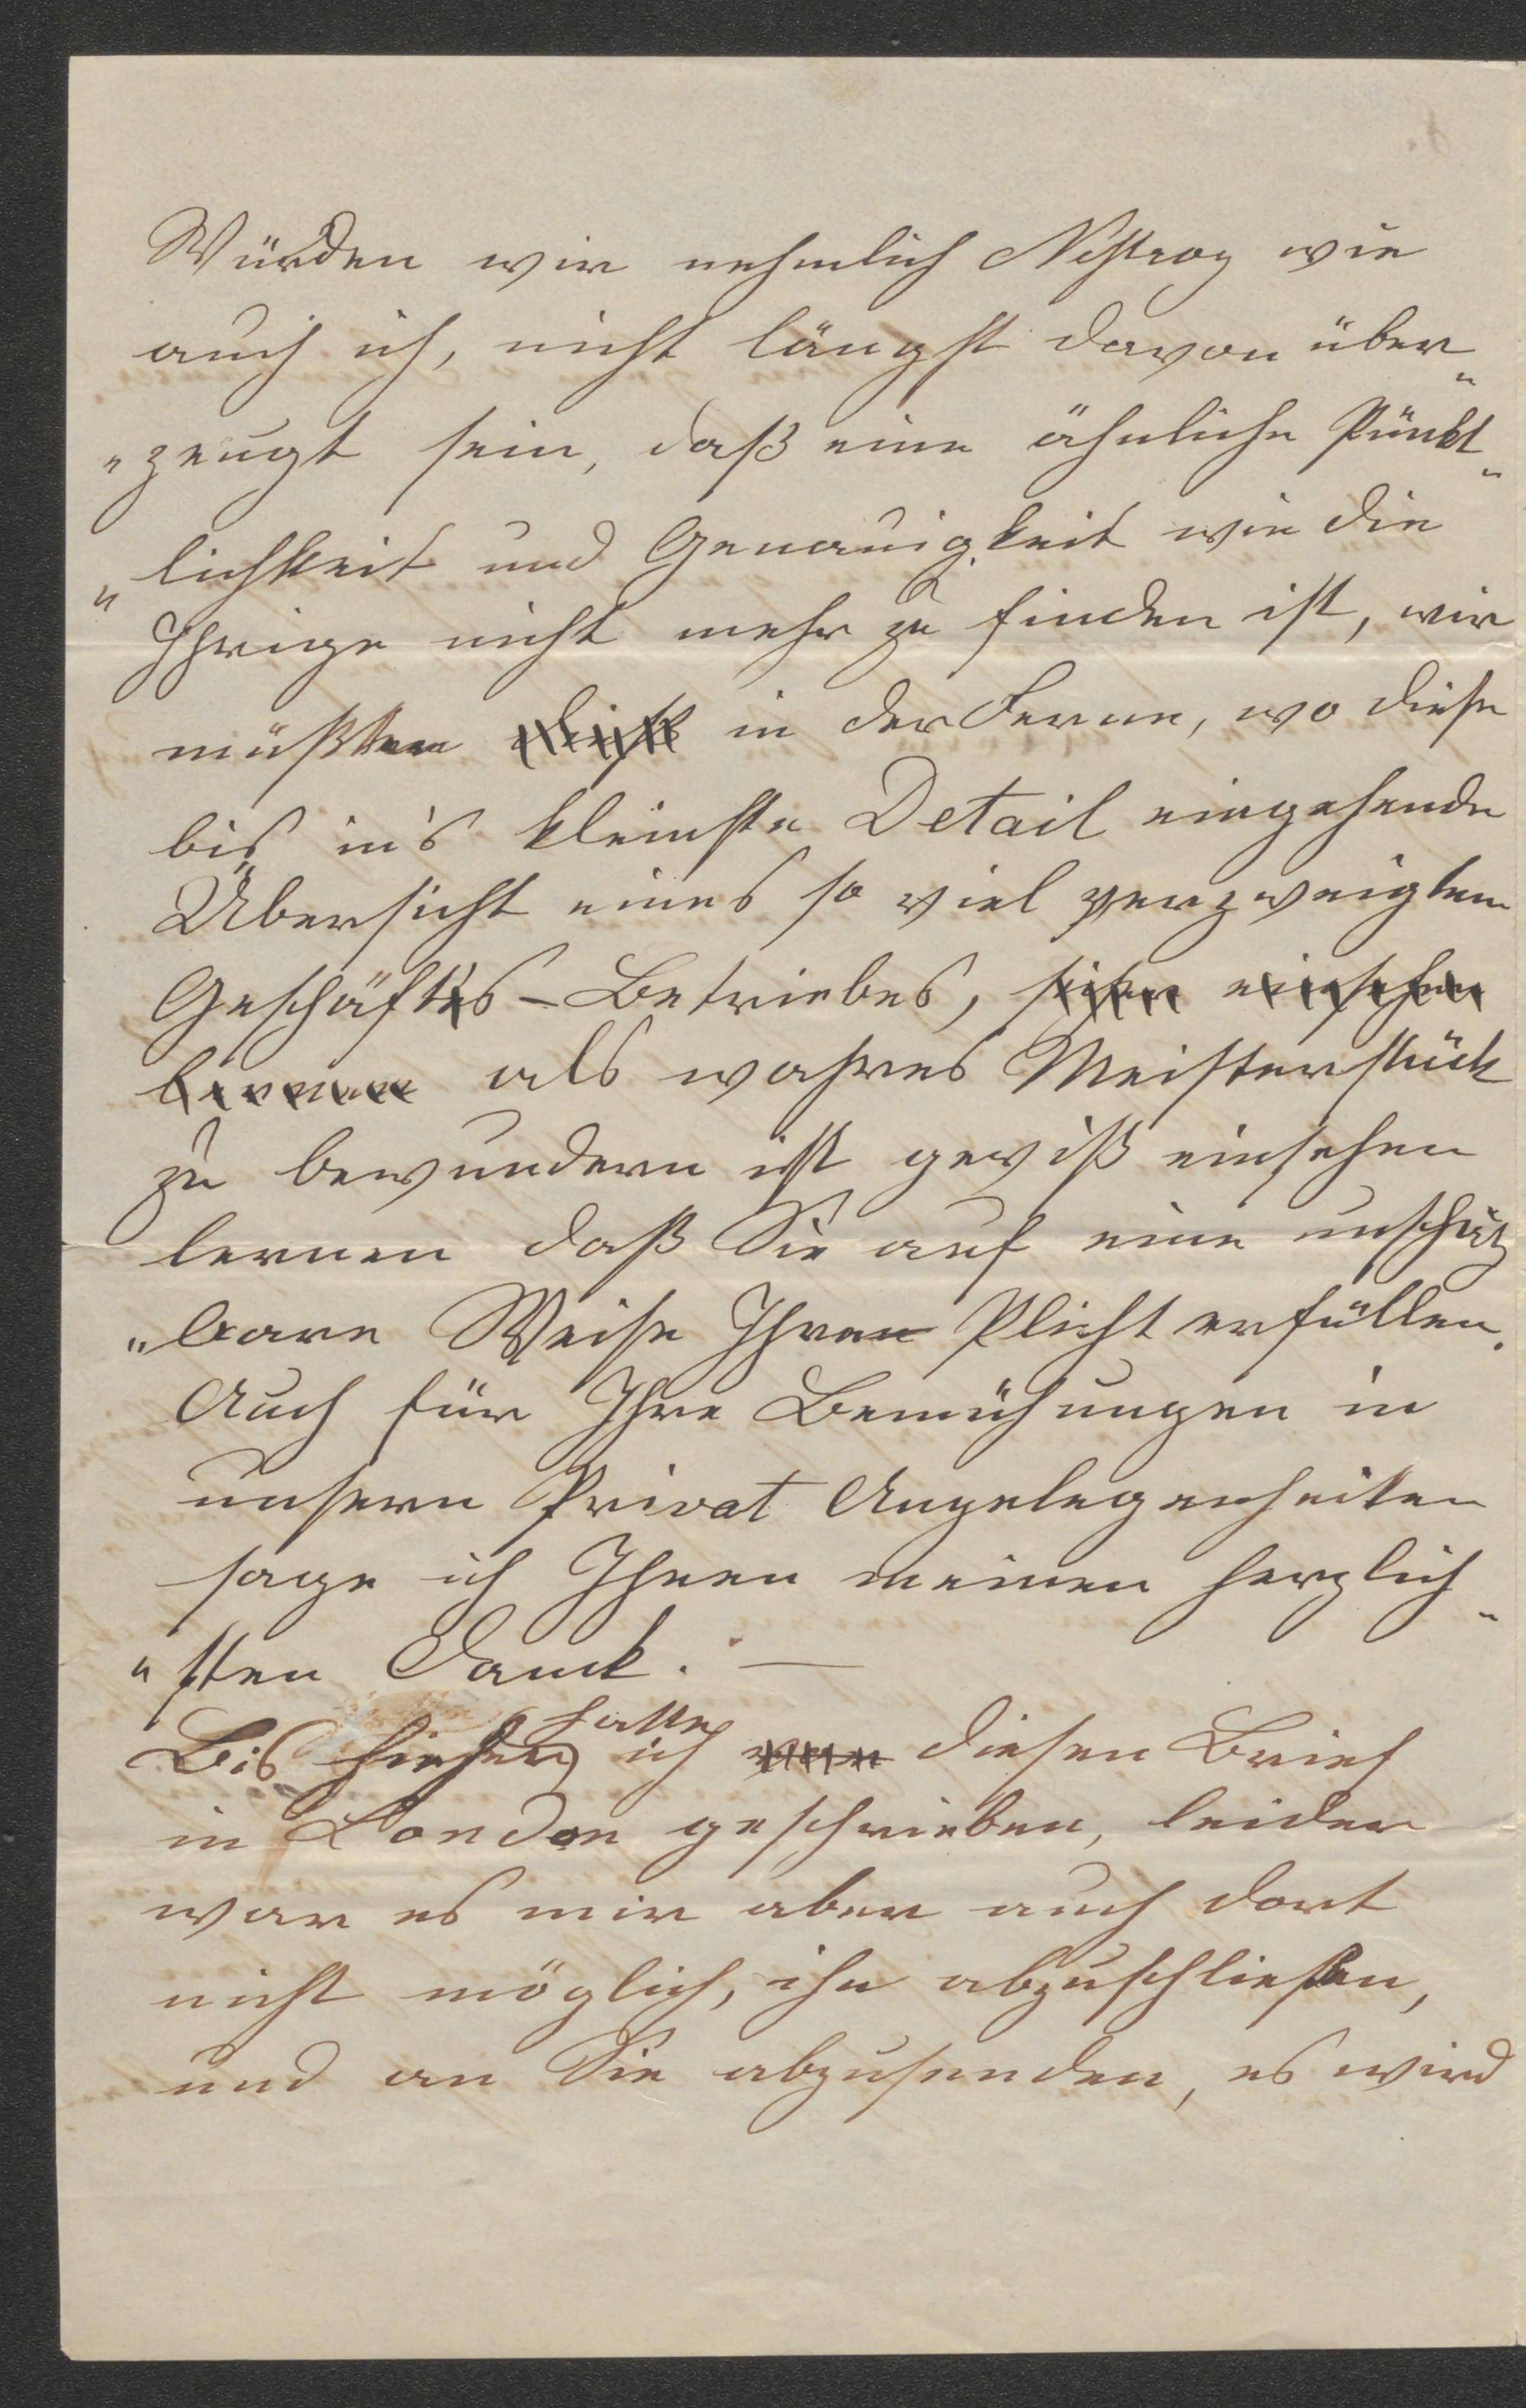 Würden wir nehmlich Nestroy wie
auch ich, nicht längst davon über„
„zeugt sein, daß eine ähnliche Pünkt„
„lichkeit und Genauigkeit wie die
Ihrige nicht mehr zu finden ist, wir
müßten in der Ferne, wo diese
bis in's kleinste Detail eingehende
Übersicht eines so viel verzweigten
Geschäfts-Betriebes, einsehen
lernen als wahres Meisterstück
zu bewundern ist gewiß einsehen
lernen daß Sie auf eine unschätz
„bare Weise Ihre Plicht erfüllen.
Auch für Ihre Bemühungen in
unsern Privat Angelegenheiten
sage ich Ihnen meinen herzlich„
„sten Dank. —
Bis hieher hatte ich diesen Brief
in London geschrieben, leider
war es mir aber auch dort
nicht möglich, ihn abzuschließen,
und an Sie abzusenden, es wird